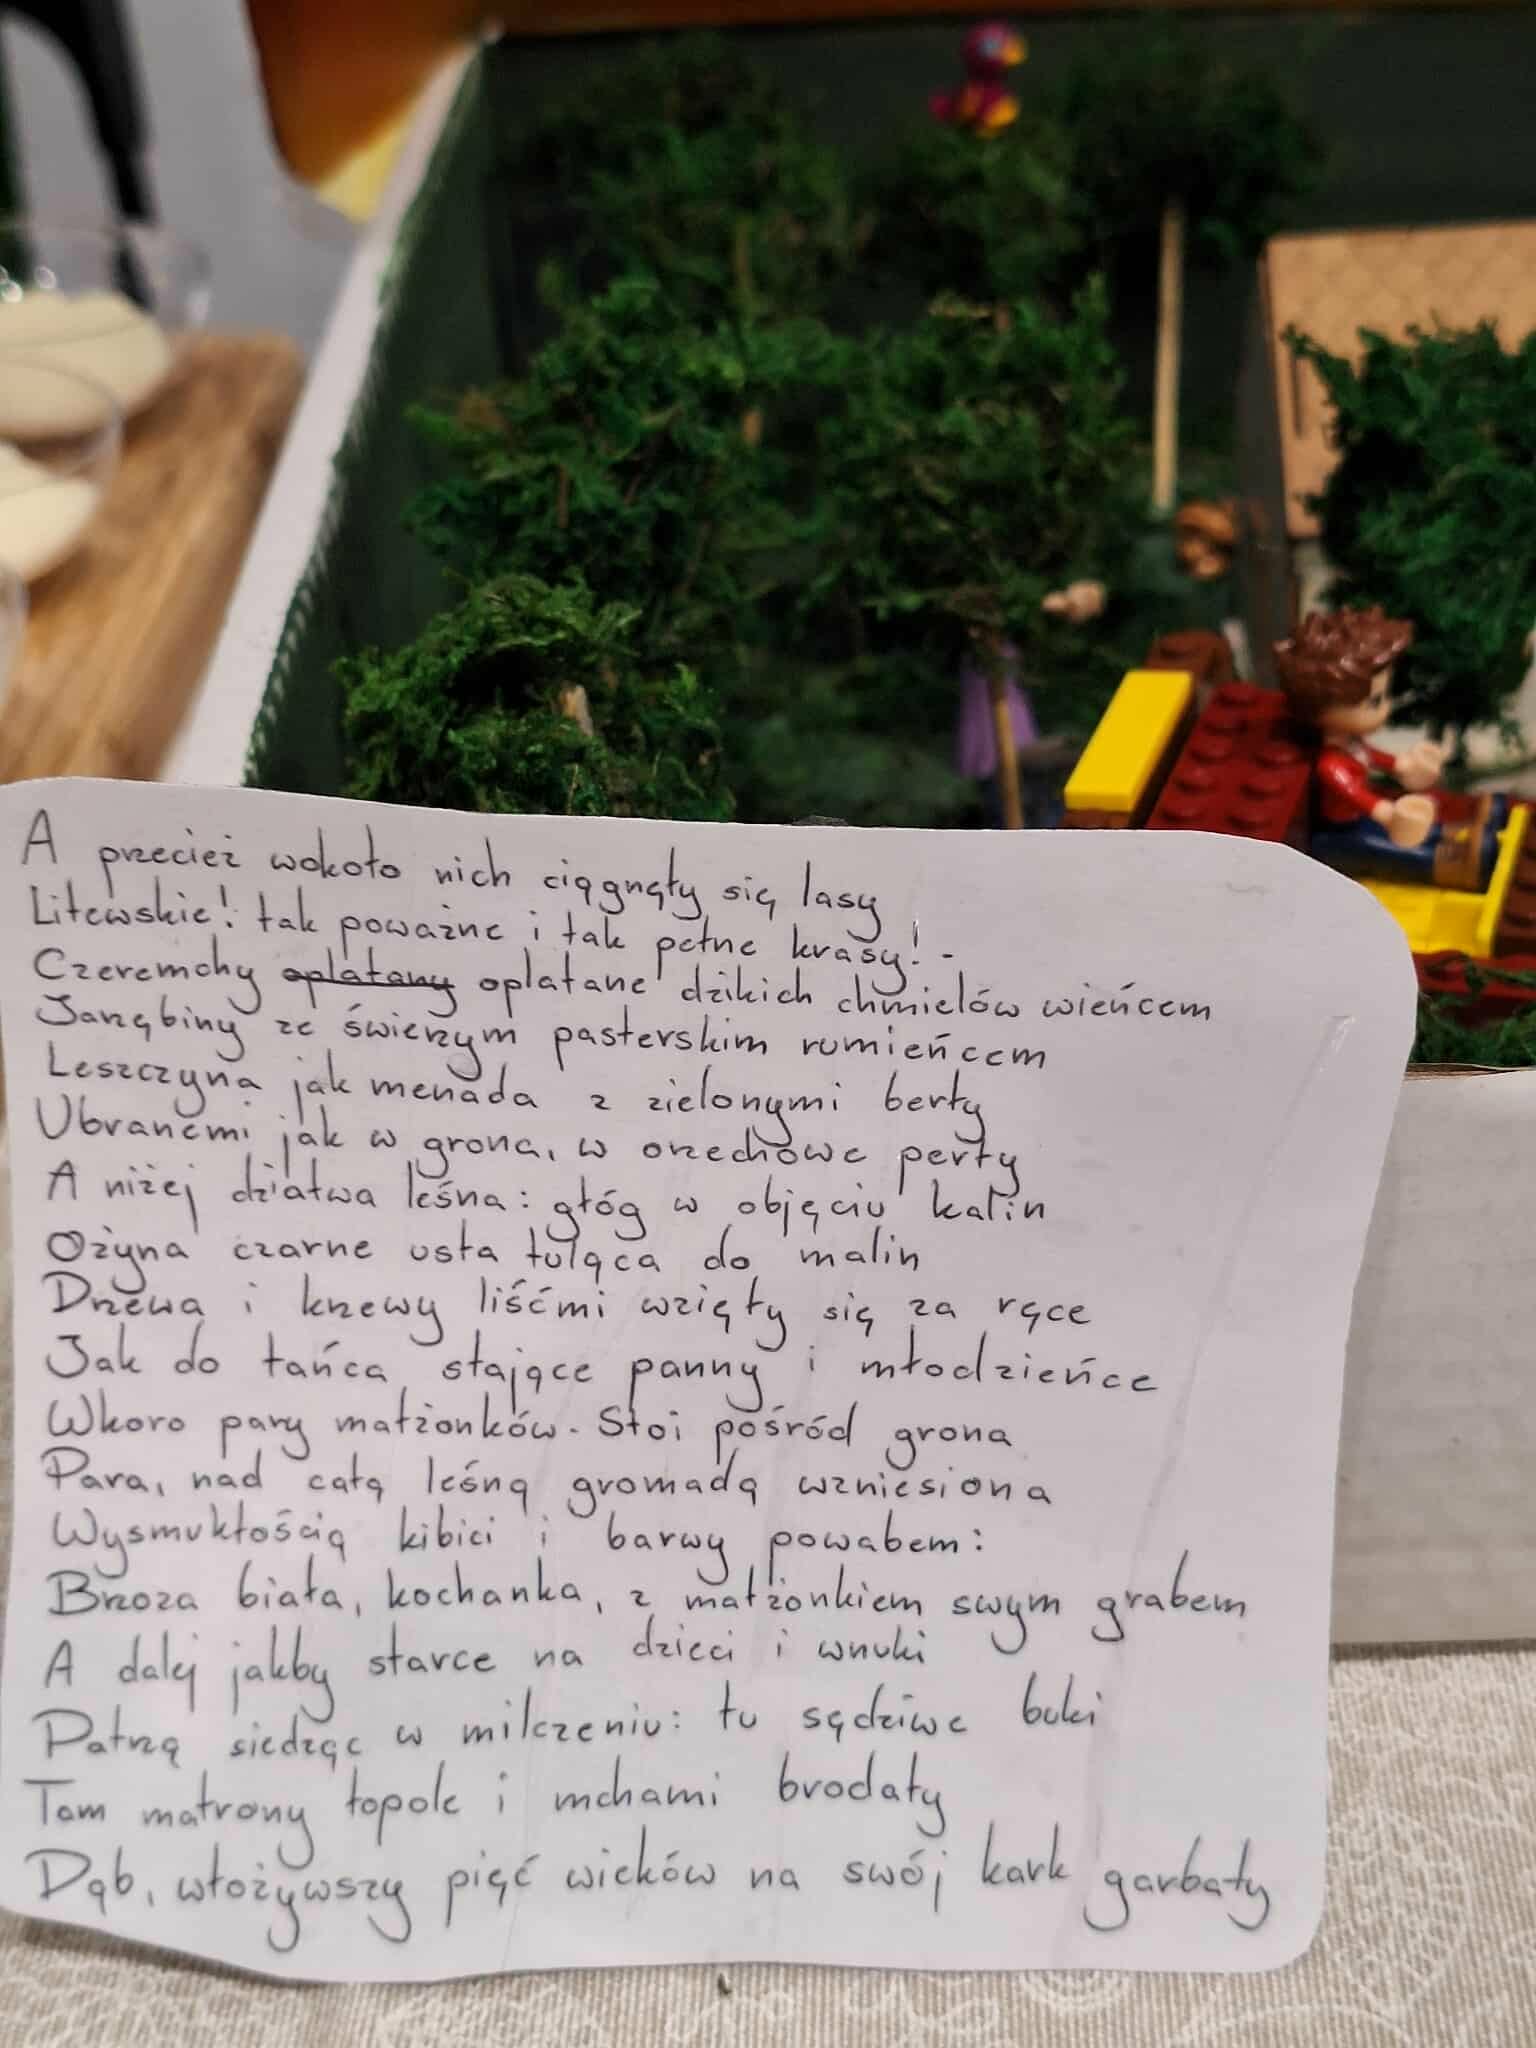 A przecież wokoło nich ciągnęły się lasy
Litewskie! tak poważne i tak pełne krasy! -
Czeremchy oplatany oplatane dzikich chmielów wieńcem
Jarzębiny ze świeżym pasterskim rumieńcem
Leszczyna jak menada z zielonymi berły
Ubranemi jak w grona, w orzechowe perły
A niżej dziatwa leśna: głóg w objęciu kalin
Ożyna czarne usta tuląca do malin
Drzewa i krzewy liśćmi wzięły się za ręce
Jak do tańca stające panny i młodzieńce
Wkoro pary małżonków. Stoi pośród grona
Para, nad całą leśną gromadą wzniesiona
Wysmukłością kibici i barwy powabem:
Brzoza biała, kochanka, z małżonkiem swym grabem
A dalej jakby starce na dzieci i wnuki
Patrzą siedząc w milczeniu: tu sędziwe buki
Tam matrony topole i mchami brodaty
Dąb, włożywszy pięć wieków na swój kark garbaty